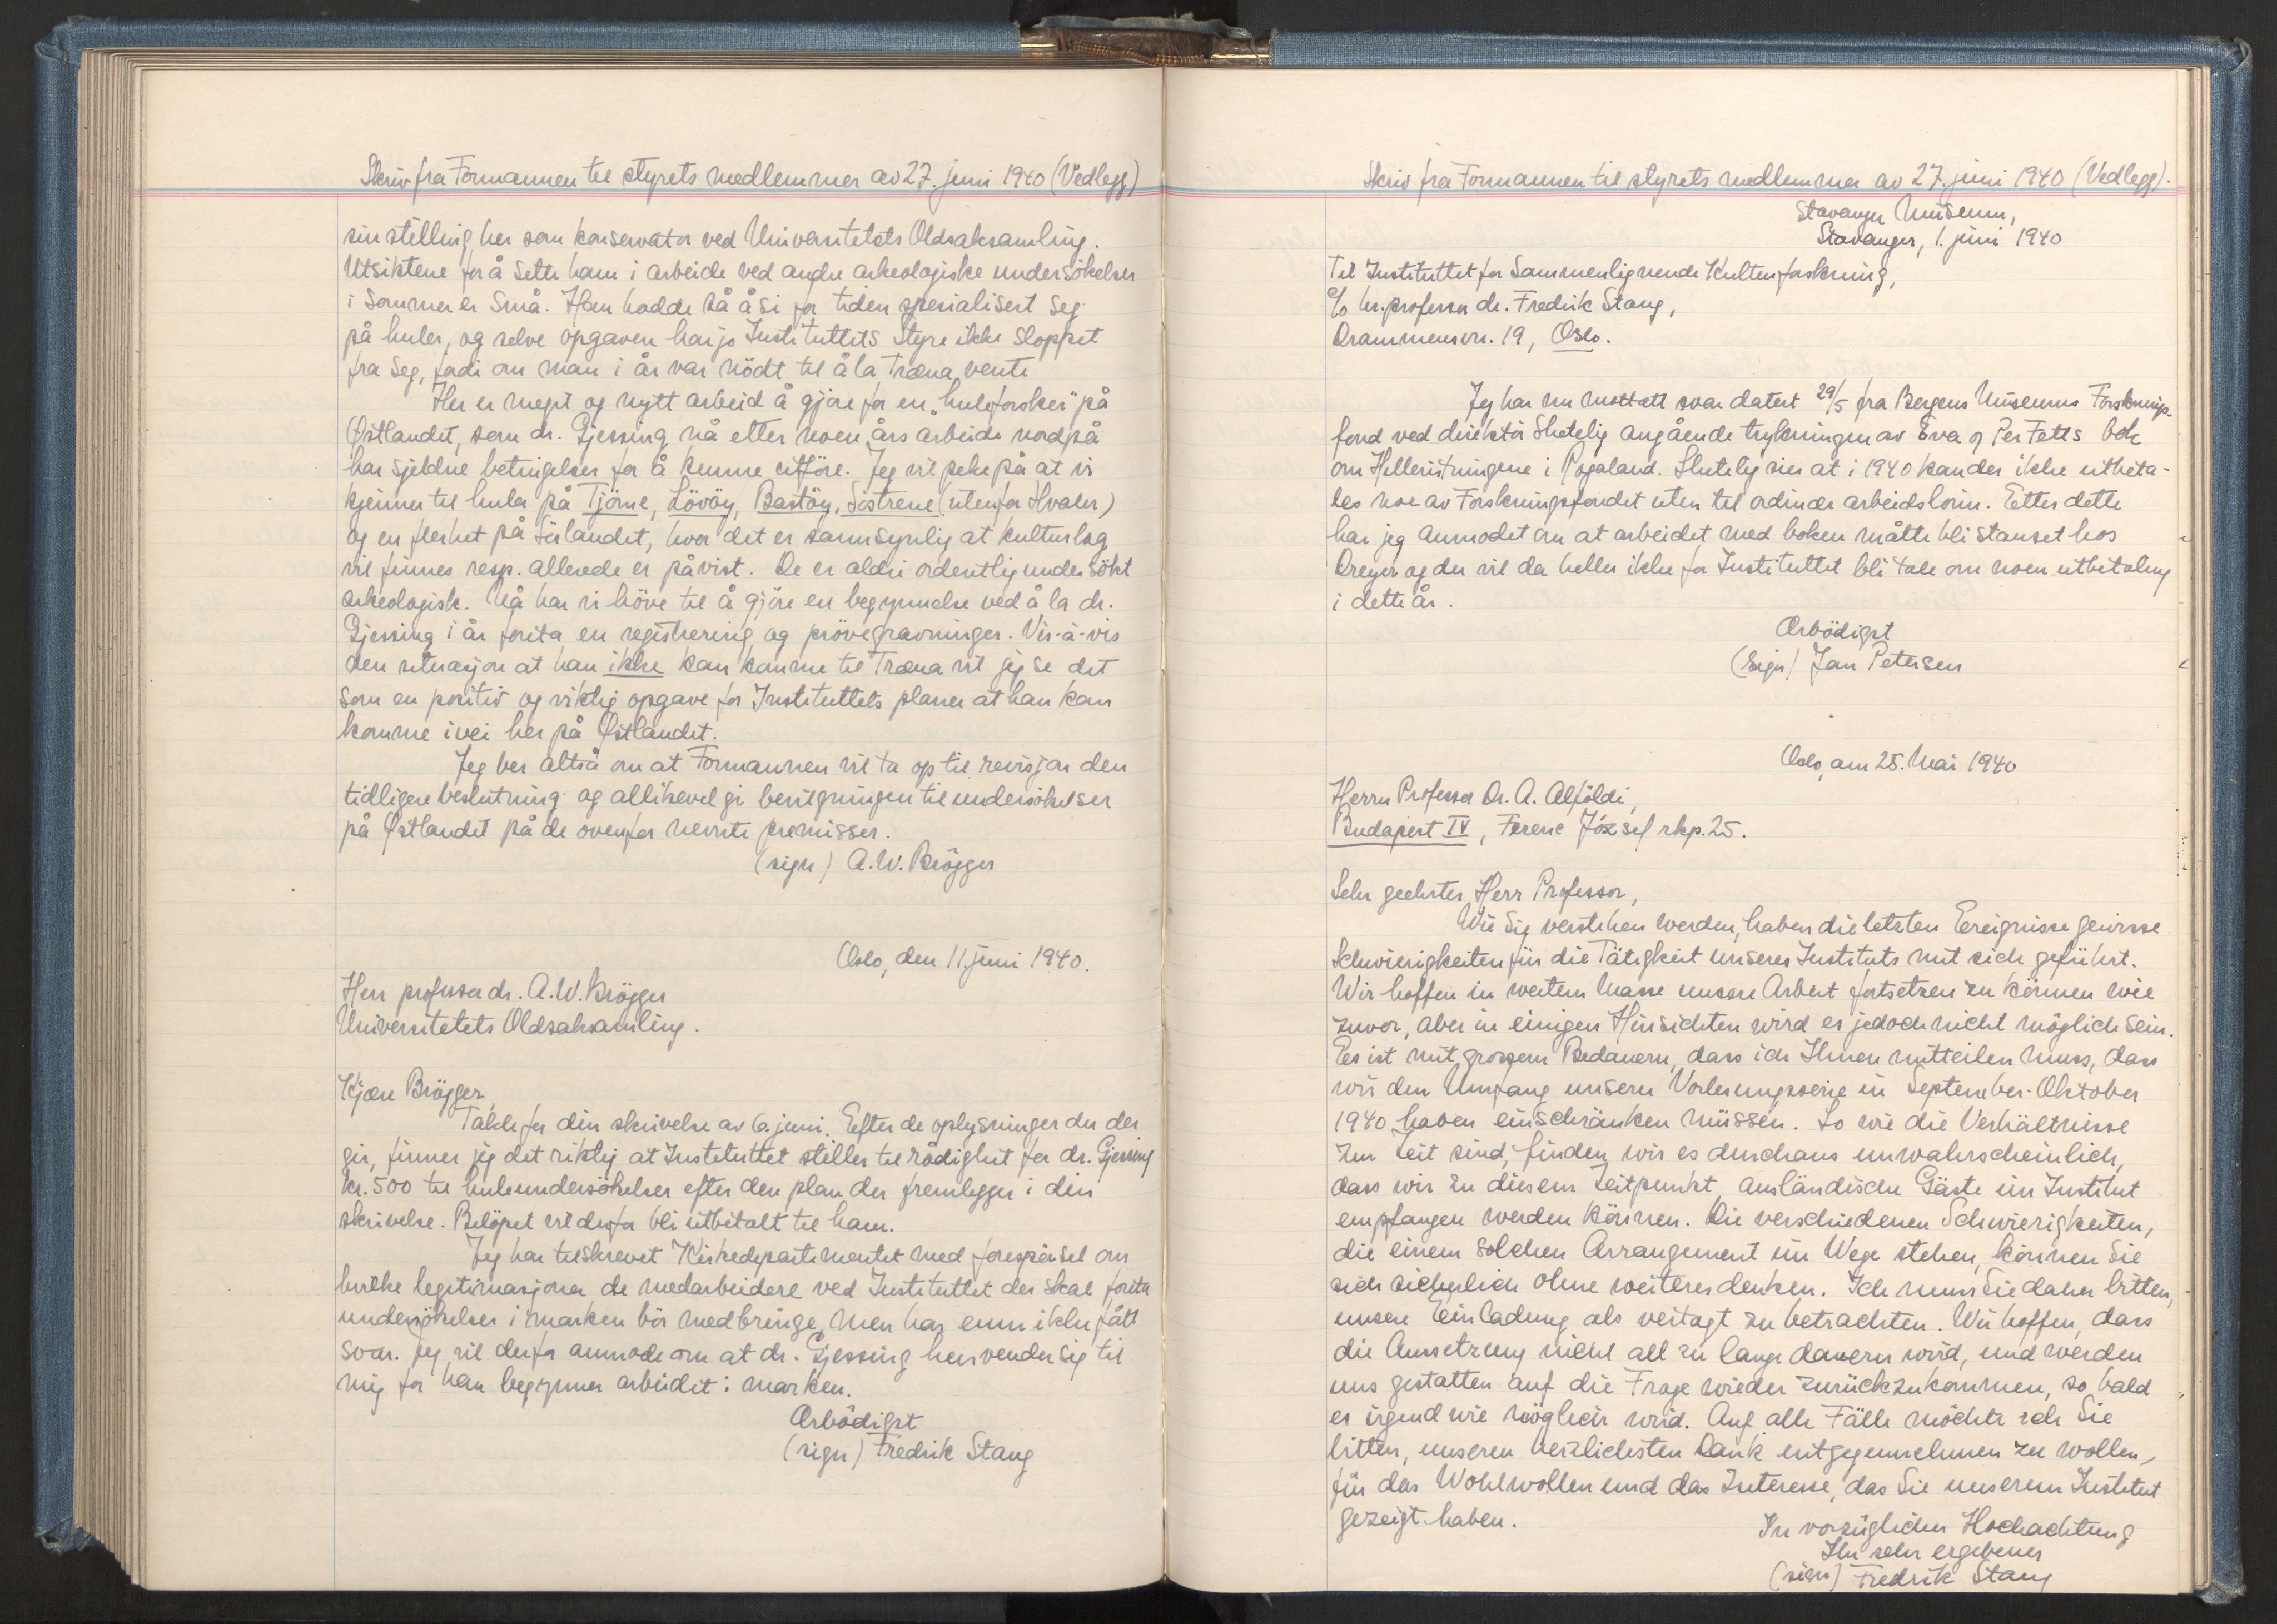 Skriv fra Formannen til styrets medlemmer av 27. juni 1940 (Vedlegg)
sin stilling her som konservator ved Universitetets Oldsaksamling.
Utsiktene for å sette ham i arbeide ved andre arkeologiske undersökelser
i sommer er små. Han hadde så å si for tiden spesialisert seg
på huler, og selve opgaven har jo Instituttets Styre ikke sloppet
fra seg, fordi om man i år var nödt til å la Træna vente
Her er meget og nytt arbeid å gjøre for en „huleforsker" på
Østlandet, som dr. Gjessing nå etter noen års arbeide nordpå
har sjeldne betingelser for å kunne utföre. Jeg vil peke på at vi
kjenner til huler på Tjöme, Lövöy, Bastöy, Söstrene (utenfor Hvaler)
og en flerhet på Sörlandet, hvor det er sannsynlig at kulturlag
vil finnes resp. allerede er påvist. De er aldri ordentlig undersökt
arkeologisk. Nå har vi höve til å gjöre en begynnelse ved å la dr.
Gjessing i år foreta en registrering og prövegravninger. Vis-à-vis
den situasjon at han ikke kan komme til Træna vil jeg se det
som en positiv og viktig opgave for Instituttets planer at han kan
komme ivei her på Østlandet.
Jeg ber altså om at Formannen vil ta op til revisjon den
tidligere beslutning og allikevel gi bevilgningen til undersökelser
på Østlandet på de ovenfor nevnte premisser.
(sign) A.W. Brögger
Oslo, den 11. juni 1940.
Herr professor dr. A.W. Brögger
Universitetets Oldsaksamling.
Kjære Brögger,
Takk for din skrivelse av 6. juni. Efter de oplysninger du der
gir, finner jeg det riktig at Instituttet stiller til rådighet for dr. Gjessing
kr. 500 til huleundersökelser efter den plan du fremlegger i din
skrivelse. Belöpet vil derfor bli utbetalt til ham.
Jeg har tilskrevet Kirkedepartementet med forespörsel om
hvilke legitimasjoner de medarbeidere ved Instituttet der skal foreta
undersökelser i marken bör medbringe, men har ennu ikke fått
svar. Jeg vil derfor anmode om at dr. Gjessing henvender sig til
mig for han begynner arbeidet i marken.
Ærbödigst
(sign) Fredrik Stang
Skriv fra Formannen til styrets medlemmer av 27. juni 1940 (Vedlegg).
Stavanger Museum,
Stavanger, 1. juni 1940
Til Instituttet for Sammenlignende Kulturforskning,
c/o hr. professor dr. Fredrik Stang,
Drammensvn. 19, Oslo.
Jeg har nu mottatt svar datert 29/5 fra Bergens Museums Forsknings-
fond ved direktör Shetelig angående trykningen av Eva og Per Fetts bok
om Helleristningene i Rogaland. Shetelig sier at i 1940 kan der ikke utbeta-
les noe av Forskningsfondet uten til ordinær arbeidslönn. Etter dette
har jeg anmodet om at arbeidet med boken måtte bli stanset hos
Dreyer og der vil da heller ikke for Instituttet bli tale om noen utbetaling
i dette år.
Ærbödigst
(sign) Jan Petersen
Oslo, am 25. Mai 1940
Herrn Professor Dr. A. Alföldi,
Budapest IV, Ferenc József rkp. 25.
Sehr geehrter Herr Professor,
Wie Sie verstehen werden, haben die letzten Ereignisse gewisse
Schwierigkeiten für die Tätigkeit unseres Instituts mit sich geführt.
Wir hoffen in weitem Masse unsere Arbeit fortsetzen zu können wie
zuvor, aber in einigen Hinsichten wird es jedoch nicht möglich sein.
Es ist mit grossem Bedauern, dass ich Ihnen mitteilen muss, dass
wir den Umfang unserer Vorlesungsserie in September-Oktober
1940 haben einschränken müssen. So wie die Verhältnisse
zur Zeit sind, finden wir es durchaus unwahrscheinlich,
dass wir zu diesem Zeitpunkt ausländische Gäste im Institut
empfangen werden können. Die verschiedenen Schwierigkeiten,
die einem solchen Arrangement im Wege stehen, können Sie
sich sicherlich ohne weiteres denken. Ich muss Sie daher bitten,
unsere Einladung als vertagt zu betrachten. Wir hoffen, dass
die Aussetzung nicht all zu lange dauern wird, und werden
uns gestatten auf die Frage wieder zurückzukommen, so bald
es irgend wie möglich wird. Auf alle Fälle möchte ich Sie
bitten, unseren herzlichsten Dank entgegennehmen zu wollen,
für das Wohlwollen und das Interesse, das Sie unserem Institut
gezeigt haben.
In vorzüglicher Hochachtung
Ihr sehr ergebener
(sign) Fredrik Stang